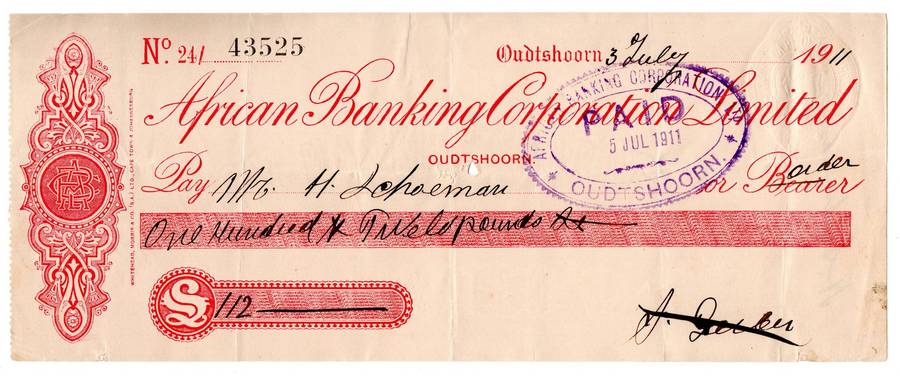 Nº 24/ 43525
Oudtshoorn 3 July 1911
African Banking Corporation Limited
OUDTSHOORN.
Pay Mr. H. Schoeman or Bearer order
One Hundred & Twelve pounds
£ 112
AFRICAN BANKING CORPORATION LTD
PAID
5 JUL 1911
OUDTSHOORN.
WHITEHEAD, MORRIS & CO. (S.A.) LTD., CAPE TOWN & JOHANNESBURG.